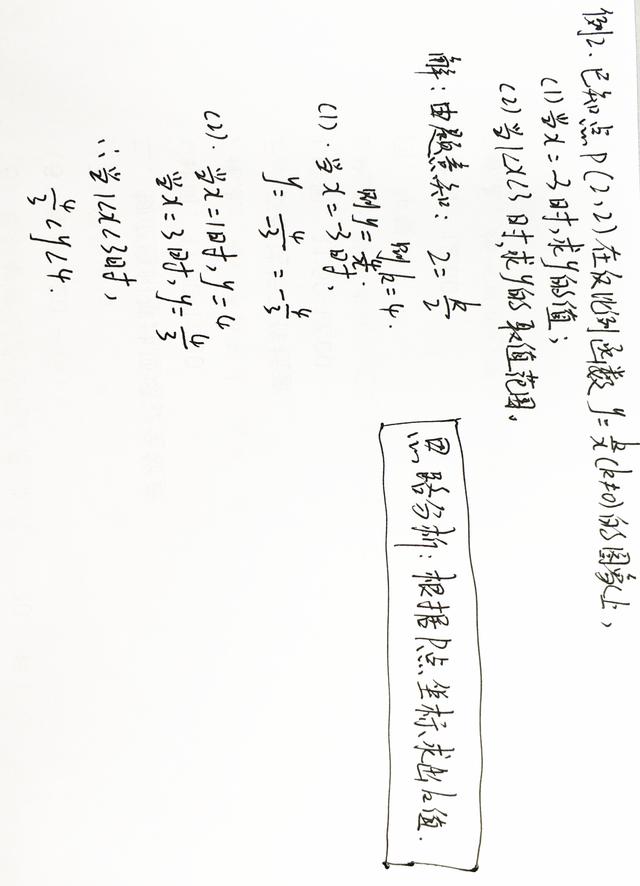 例2. 已知点P(2,2)在反比例函数 y=k/x (k≠0)的图象上,
(1) 当x=-3时,求y的值;
(2) 当1<x<3时,求y的取值范围。
解:由题意知: 2=k/2
则k=4.
则y=4/x.
(1). 当x=-3时,
y=4/-3=-4/3
(2). 当x=1时, y=4
当x=3时, y=4/3
∴当1<x<3时,
4/3<y<4.
思路分析:根据P点坐标,求出k值.